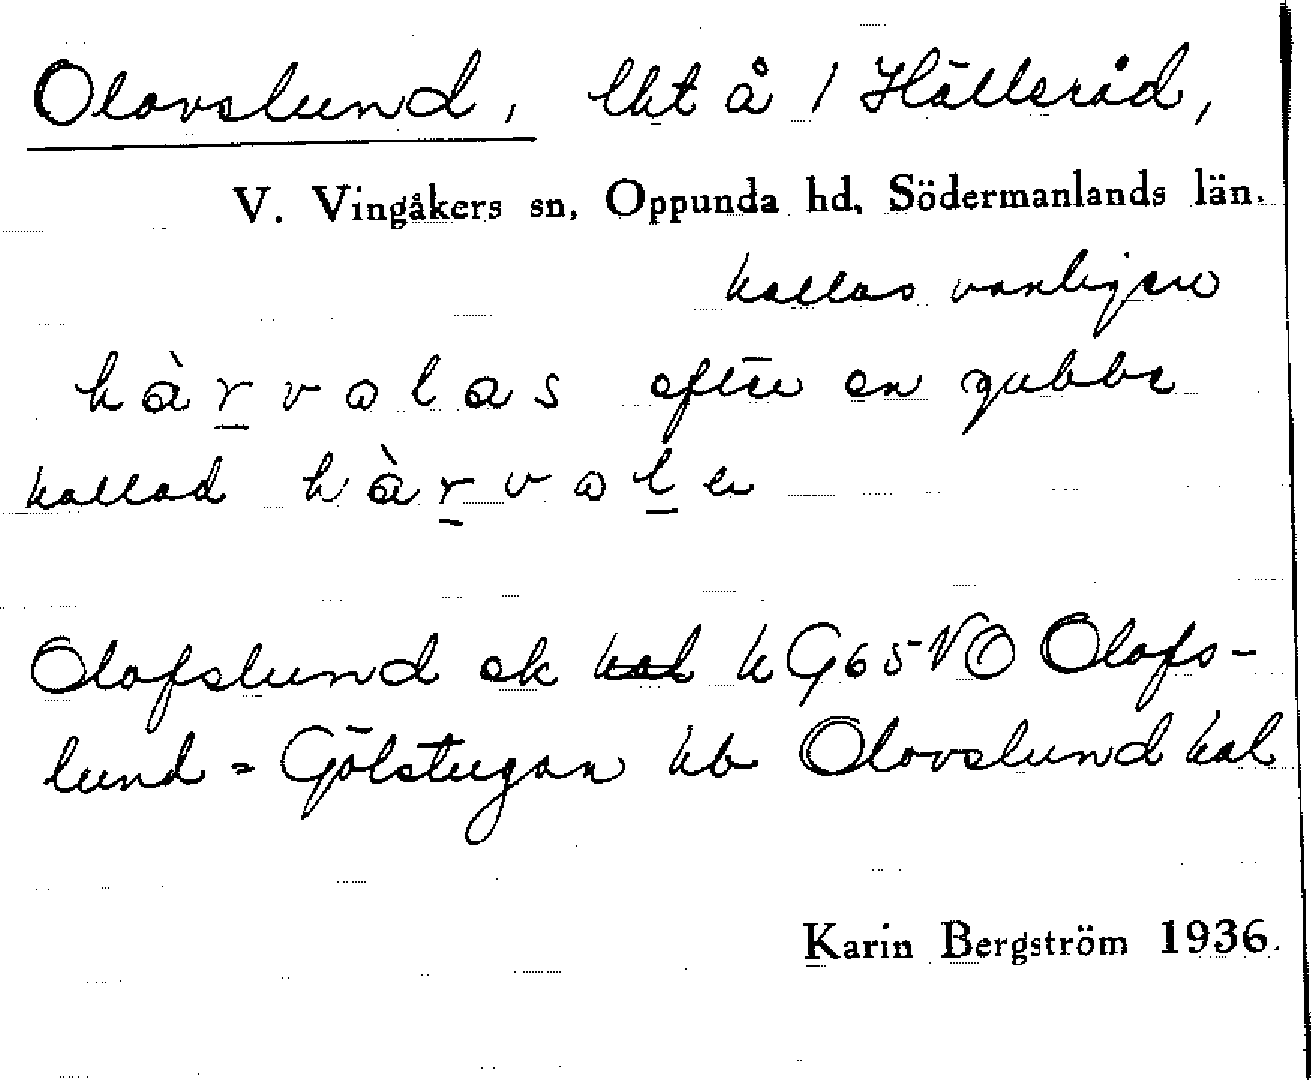 Olovslund, lht å / Hällsråd,
V. Vingåkers sn, Oppunda hd, Södermanlands län.
kallas vanligen
hàrvalas efter en gubbe
kallad hàrvalen
Olofslund ek kal k G65 NO Olofs-
lund = Gölstugan hb Olovslund kal
Karin Bergström 1936.